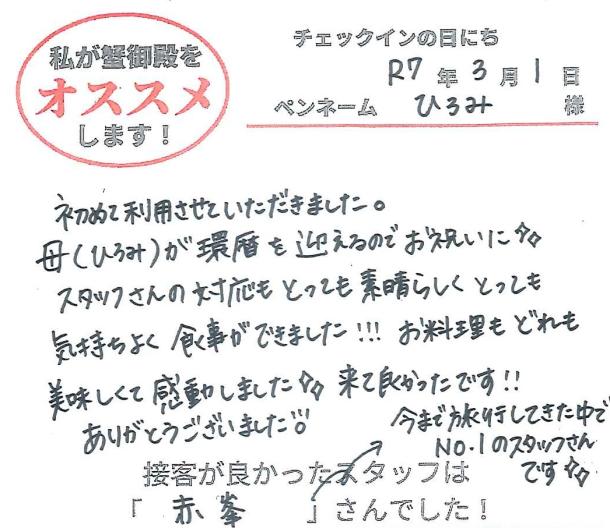 私が蟹御殿を
オススメ
します！
チェックインの日にち
R7年3月1日
ペンネーム ひろみ 様
初めて利用させていただきました。
母(ひろみ)が環暦を迎えるのでお祝いに
スタッフさんの対応もとっても素晴らしくとっても
気持ちよく食事ができました!!! お料理もどれも
美味しくて感動しました 来て良かったです!!
ありがとうございました
今まで旅行してきた中で
NO.1のスタッフさん
です
接客が良かったスタッフは
「赤峯」さんでした！